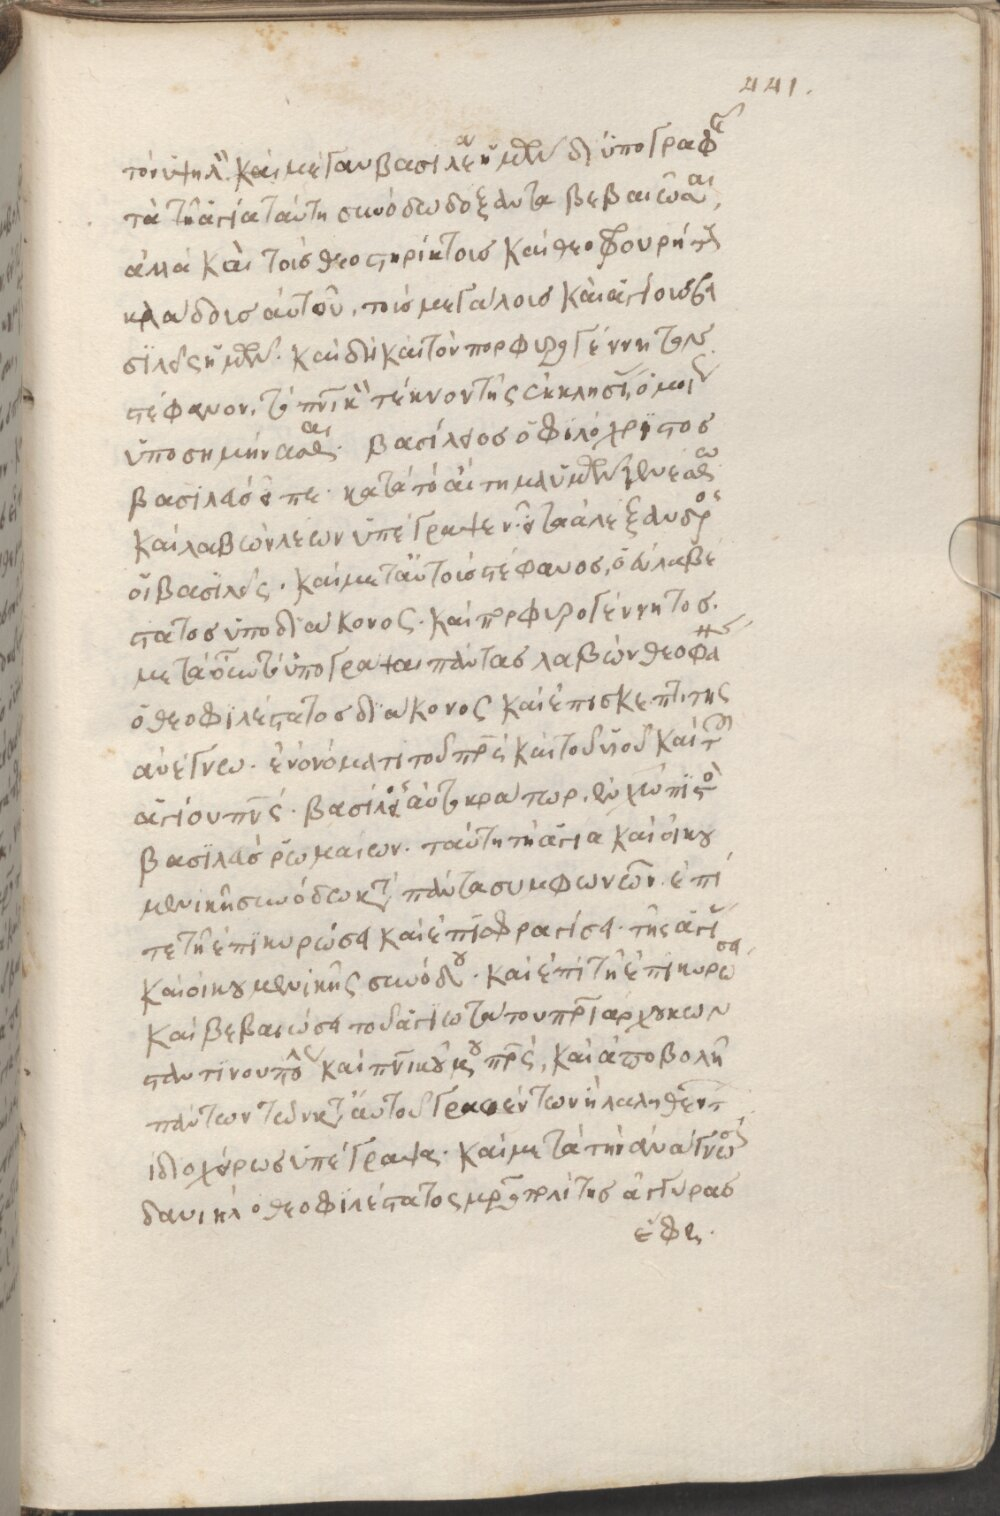 441.
τὸν ὑψηλὸν καὶ μέγαν βασιλέα ἡμῶν δι' ὑπογραφῆς
τὰ τῇ ἁγίᾳ ταύτῃ συνόδῳ δόξαντα βεβαιῶσαι,
ἀλλὰ καὶ τοῖς θεοστηρίκτοις καὶ θεοφρουρήτοις
κλάδοις αὐτοῦ, τοῖς μεγάλοις καὶ ἁγίοις βα
σιλεῦσιν ἡμῶν. καὶ δὴ καὶ τὸν πορφυρογέννητον
στέφανον, τὸ πνευματικὸν τέκνον τῆς ἐκκλησίας, ὁμοίως
ὑποσημήνασθαι. βασίλειος ὁ φιλόχριστος
βασιλεὺς εἶπε. κατὰ τὸ αἴτημα ὑμῶν γενέσθω
καὶ λαβὼν λέων ὑπέγραψεν. εἶτα ἀλέξανδρος
οἱ βασιλεῖς. καὶ μετ' αὐτοὺς στέφανος, ὁ εὐλαβέ
στατος ὑποδιάκονος. καὶ πορφυρογέννητος.
μετὰ οὖν τὸ ὑπογράψαι πάντας λαβὼν θεοφάνης
ὁ θεοφιλέστατος διάκονος καὶ ἐπισκεπτίτης
ἀνέγνω. ἐν ὀνόματι τοῦ πατρὸς καὶ τοῦ υἱοῦ καὶ τοῦ
ἁγίου πνεύματος. βασίλειος αὐτοκράτωρ, ἐν χριστῷ πιστὸς
βασιλεὺς ῥωμαίων. ταύτῃ τῇ ἁγίᾳ καὶ οἰκου
μενικῇ συνόδῳ κατὰ πάντα συμφωνῶν. ἐπί
τε τῇ ἐπικυρώσει καὶ ἐπισφραγίσει τῆς ἁγίας
καὶ οἰκουμενικῆς συνόδου. καὶ ἐπὶ τῇ ἐπικυρώσει
καὶ βεβαιώσει τοῦ ἁγιωτάτου πατριάρχου κων
σταντινουπόλεως καὶ πνευματικοῦ ἡμῶν πατρός, καὶ ἀποβολῇ
πάντων τῶν κατ' αὐτοῦ γραφέντων ἢ λαληθέντων
ἰδιοχείρως ὑπέγραψα. καὶ μετὰ τὴν ἀνάγνωσιν
δανιὴλ ὁ θεοφιλέστατος μητροπολίτης ἀγκύρας
ἔφη.